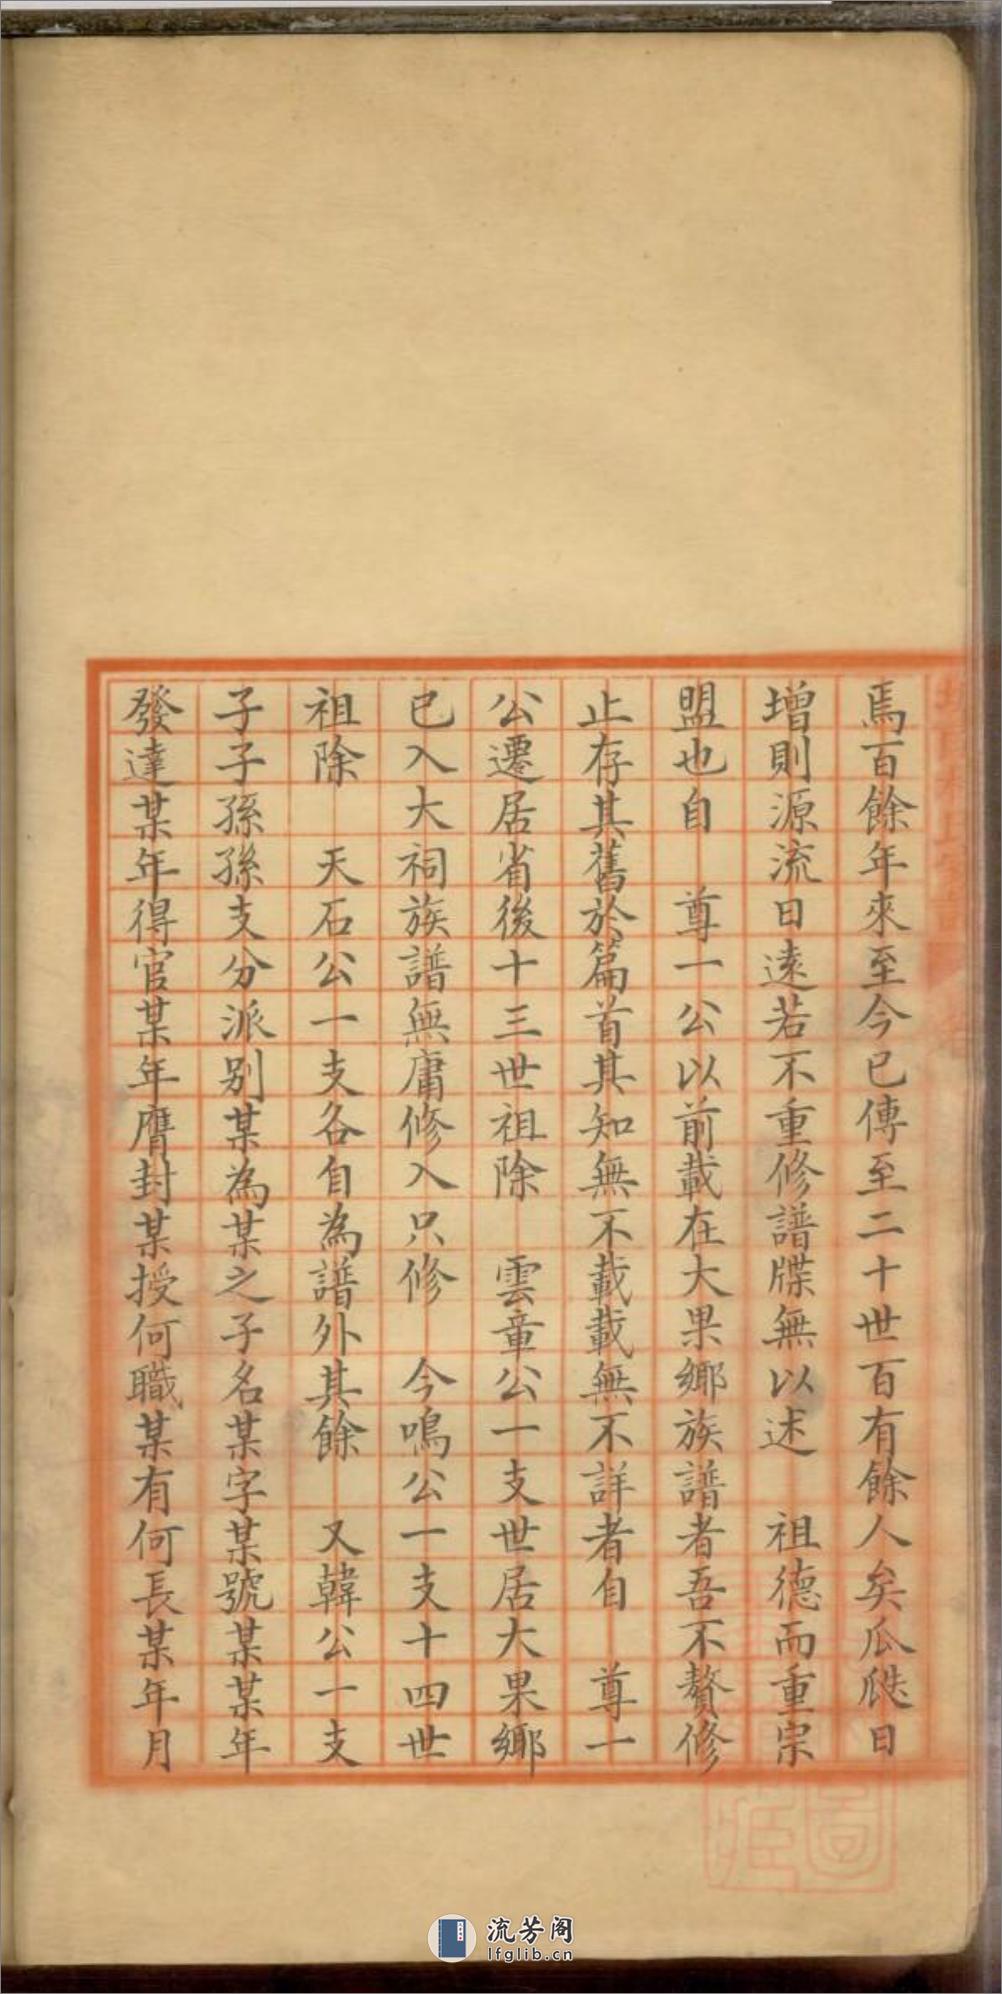 焉百餘年來至今已傳至二十世百有餘人矣瓜瓞日
增則源流日遠若不重修譜牒無以述　祖德而重宗
盟也自　尊一公以前載在大果鄉族譜者吾不贅修
止存其舊於篇首其知無不載載無不詳者自　尊一
公遷居省後十三世祖除　雲章公一支世居大果鄉
已入大祠族譜無庸修入只修　今鳴公一支十四世
祖除　天石公一支各自為譜外其餘　又韓公一支
子子孫孫支分派別某為某之子名某字某號某某年
發達某年得官某年膺封某授何職某有何長某年月
流芳阁
lfglib.cn